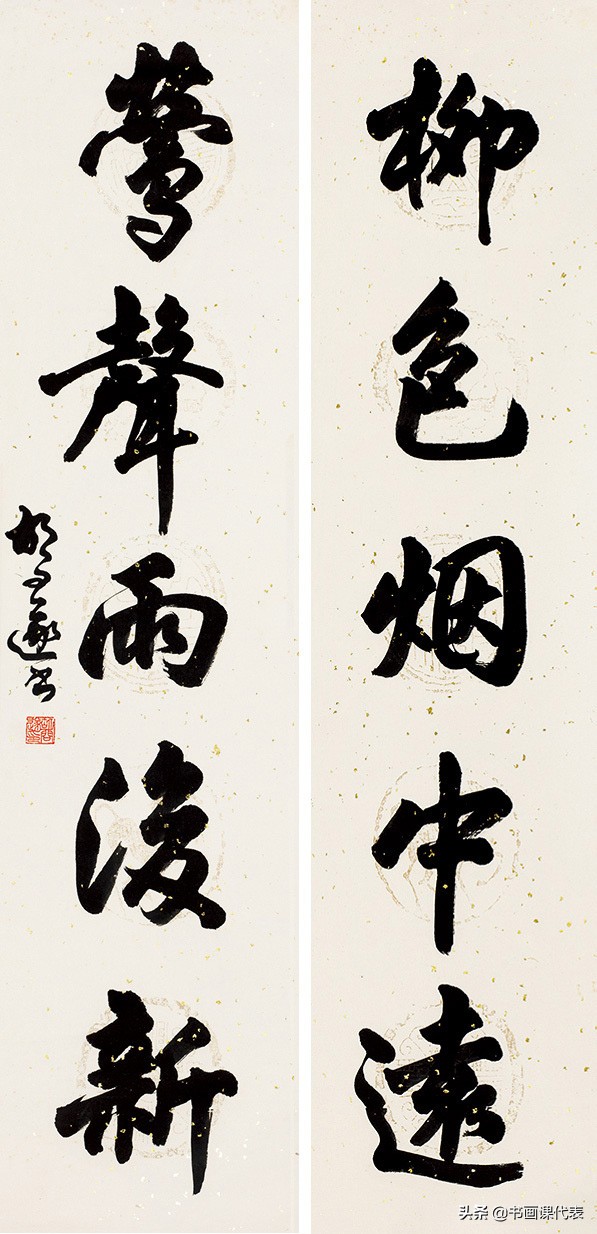 柳色烟中遠
鶯聲雨後新
胡问遂书
头条 @书画课代表